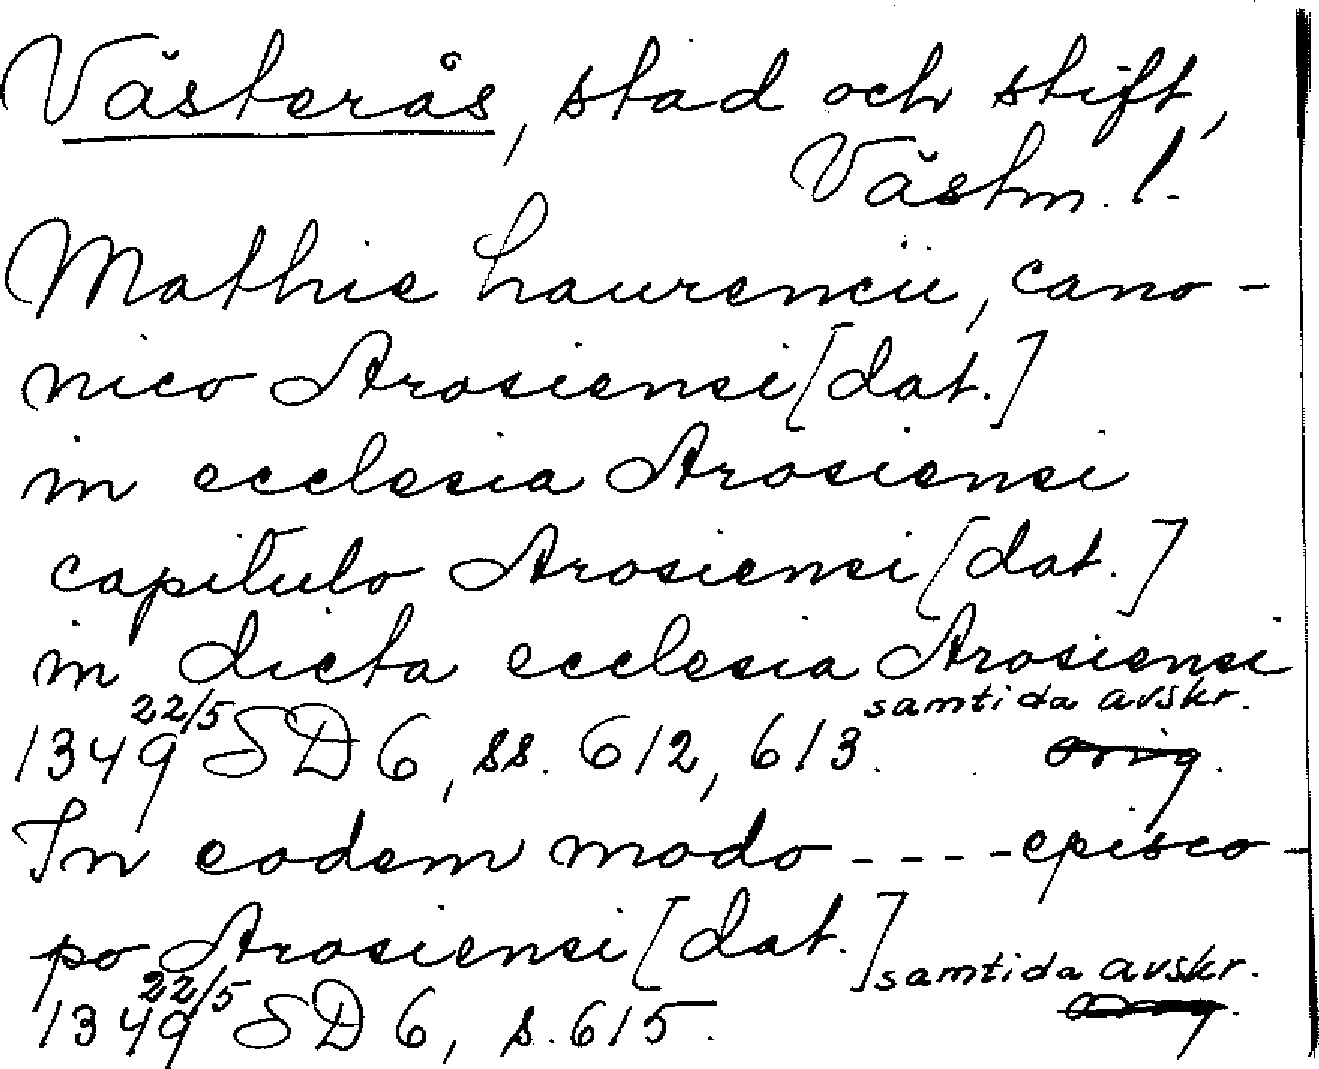 Västerås, stad och stift,
Västm. l.
Mathie Laurencii, cano-
nico Arosiensi [dat.]
in ecclesia Arosiensi
capitulo Arosiensi [dat.]
in dicta ecclesia Arosiensi
1349 22/5 SD 6, ss. 612, 613. samtida avskr.
orig.
In eodem modo ---- episco-
po Arosiensi [dat.]
1349 22/5 SD 6, s. 615. samtida avskr.
orig.